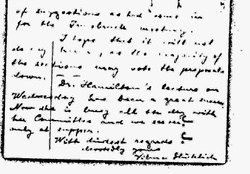 of suggestions as had come in
for the Innsbruck meeting.
I hope that it will not
do so, as the majority of
the sections may vote the proposals
down.
Dr. Hamilton's lecture on
Wednesday has been a great success
Now she is busy all the day with
her Committee and we see
only at supper.
With kindest regards
cordially yours